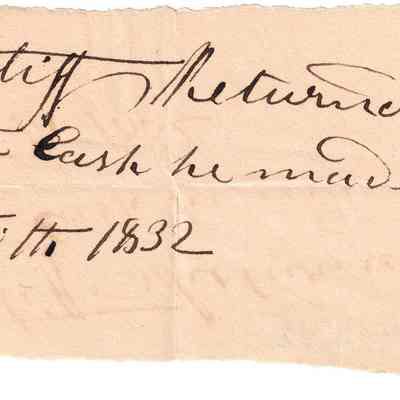 tiff Returned
Cash he made
th. 1832